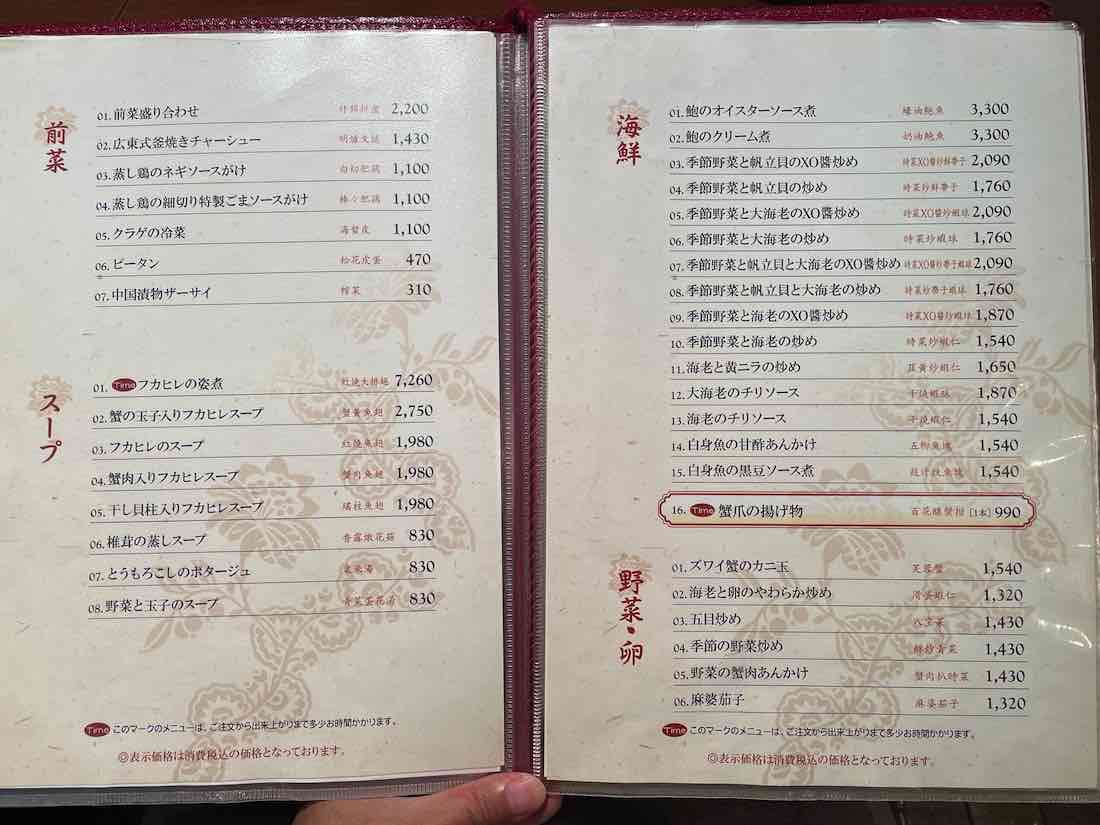 前菜
01. 前菜盛り合わせ 什錦拼盆 2,200
02. 広東式釜焼きチャーシュー 明爐叉焼 1,430
03. 蒸し鶏のネギソースがけ 白切肥鶏 1,100
04. 蒸し鶏の細切り特製ごまソースがけ 棒々肥鶏 1,100
05. クラゲの冷菜 海蜇皮 1,100
06. ピータン 松花皮蛋 470
07. 中国漬物ザーサイ 榨菜 310
スープ
01. Time フカヒレの姿煮 紅焼大排翅 7,260
02. 蟹の玉子入りフカヒレスープ 蟹黄魚翅 2,750
03. フカヒレのスープ 紅焼魚翅 1,980
04. 蟹肉入りフカヒレスープ 蟹肉魚翅 1,980
05. 干し貝柱入りフカヒレスープ 瑤柱魚翅 1,980
06. 椎茸の蒸しスープ 香露燉花菇 830
07. とうもろこしのポタージュ 粟米湯 830
08. 野菜と玉子のスープ 青菜蛋花湯 830
Time このマークのメニューは、ご注文から出来上がりまで多少お時間かかります。
◎表示価格は消費税込の価格となっております。
海鮮
01. 鮑のオイスターソース煮 蠔油鮑魚 3,300
02. 鮑のクリーム煮 奶油鮑魚 3,300
03. 季節野菜と帆立貝のXO醬炒め 時菜XO醬炒鮮帶子 2,090
04. 季節野菜と帆立貝の炒め 時菜炒鮮帶子 1,760
05. 季節野菜と大海老のXO醬炒め 時菜XO醬炒蝦球 2,090
06. 季節野菜と大海老の炒め 時菜炒蝦球 1,760
07. 季節野菜と帆立貝と大海老のXO醬炒め 時菜XO醬炒帶子蝦球 2,090
08. 季節野菜と帆立貝と大海老の炒め 時菜炒帶子蝦球 1,760
09. 季節野菜と海老のXO醬炒め 時菜XO醬炒蝦仁 1,870
10. 季節野菜と海老の炒め 時菜炒蝦仁 1,540
11. 海老と黄ニラの炒め 韮黄炒蝦仁 1,650
12. 大海老のチリソース 干焼蝦球 1,870
13. 海老のチリソース 干焼蝦仁 1,540
14. 白身魚の甘酢あんかけ 五柳魚塊 1,540
15. 白身魚の黒豆ソース煮 豉汁炆魚塊 1,540
16. Time 蟹爪の揚げ物 百花釀蟹柑 [1本] 990
野菜・卵
01. ズワイ蟹のカニ玉 芙蓉蟹 1,540
02. 海老と卵のやわらか炒め 滑蛋蝦仁 1,320
03. 五目炒め 八宝菜 1,430
04. 季節の野菜炒め 鮮炒青菜 1,430
05. 野菜の蟹肉あんかけ 蟹肉扒時菜 1,430
06. 麻婆茄子 麻婆茄子 1,320
Time このマークのメニューは、ご注文から出来上がりまで多少お時間かかります。
◎表示価格は消費税込の価格となっております。